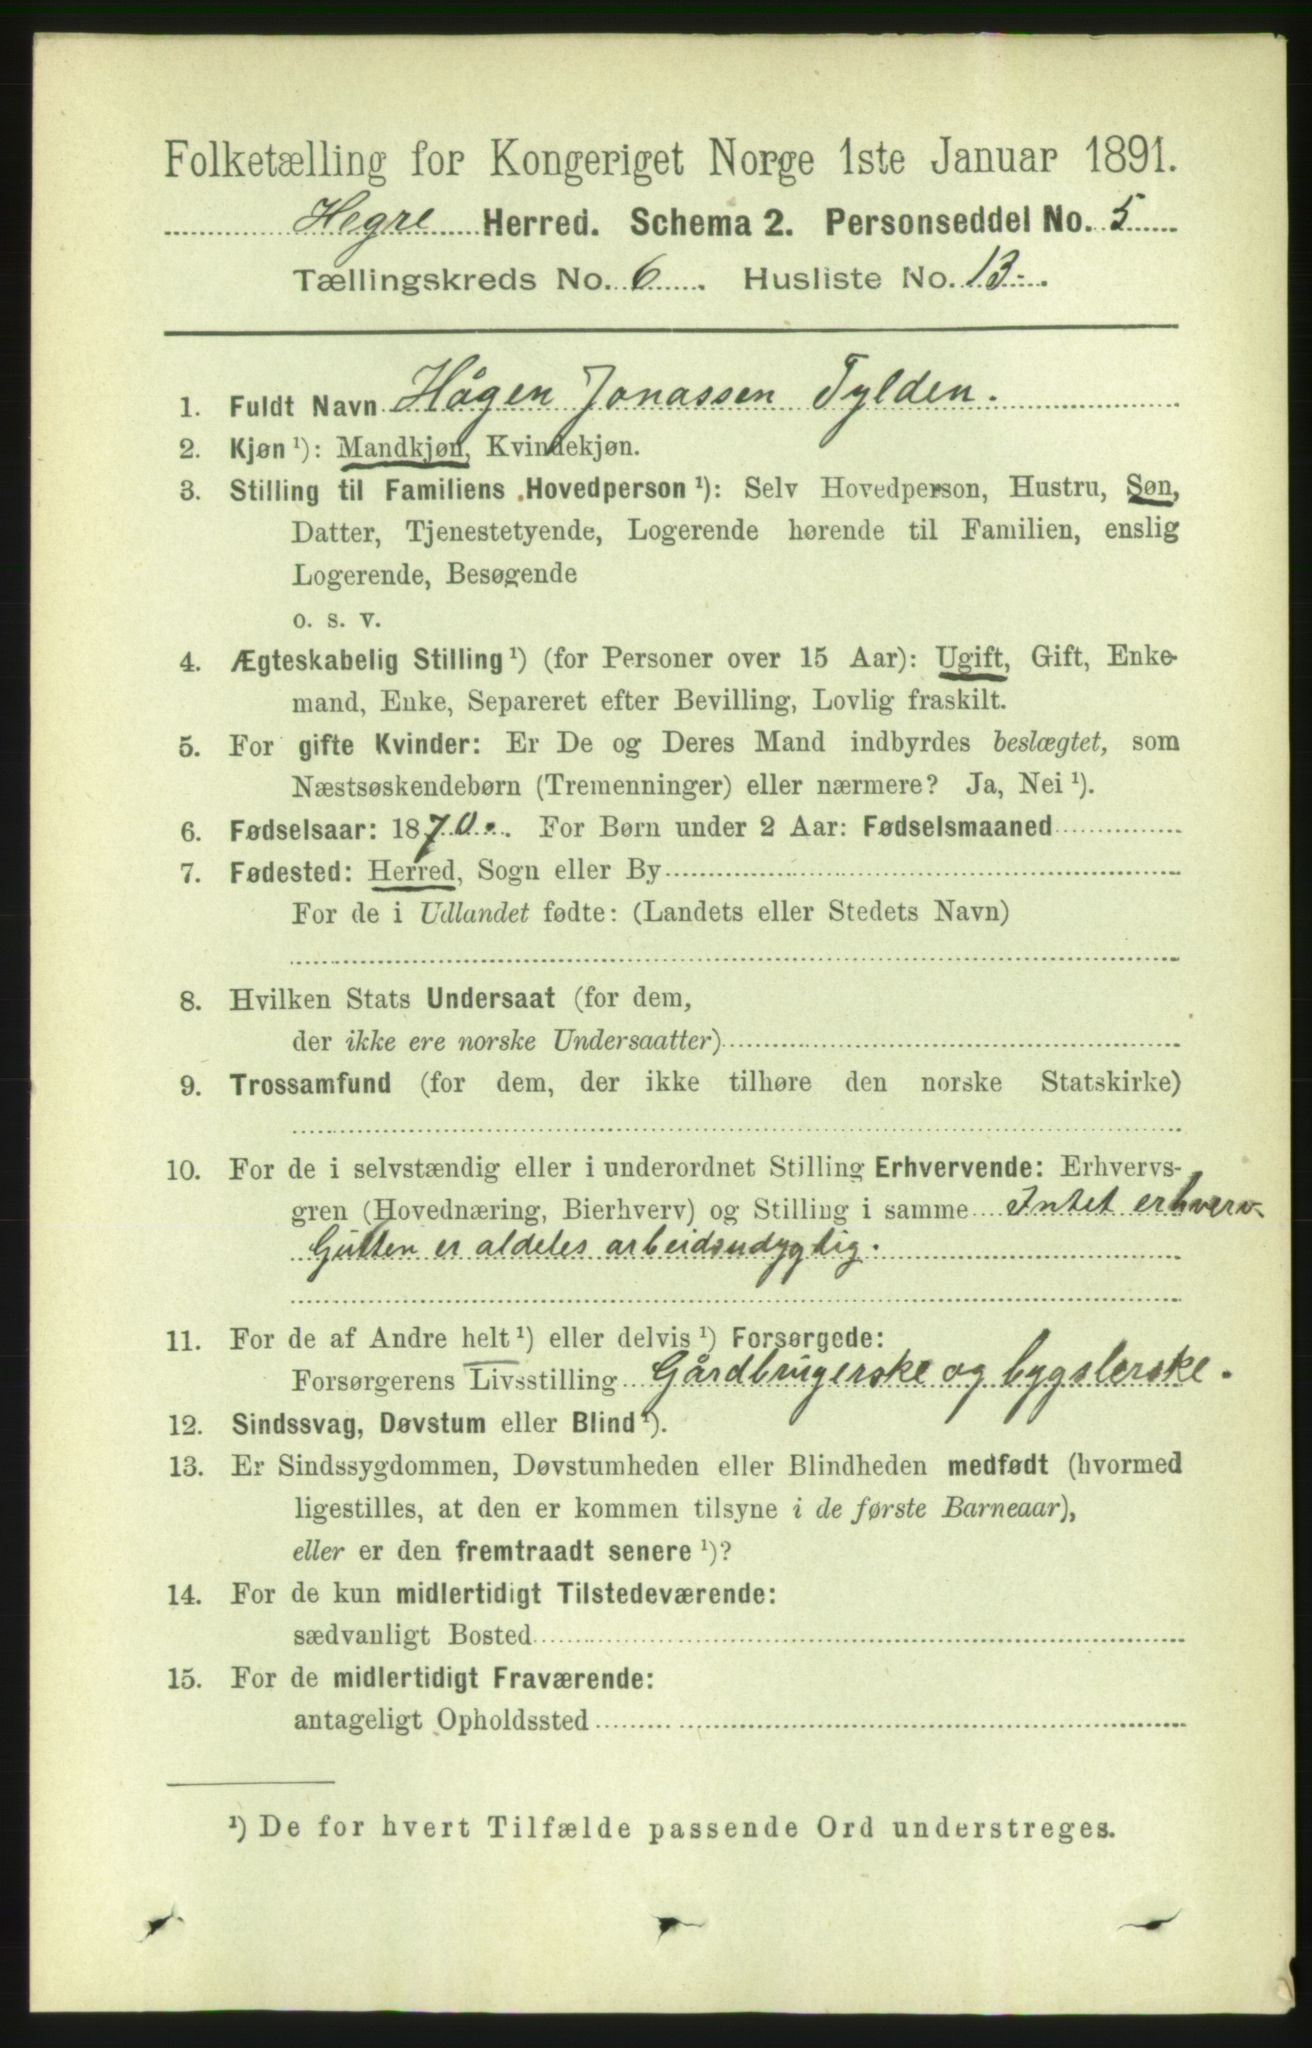 Folketælling for Kongeriget Norge 1ste Januar 1891.
Hegre Herred. Schema 2. Personseddel No. 5
Tællingskreds No. 6 . Husliste No. 13.
1. Fuldt Navn Hågen Jonassen Tylden.
2. Kjøn ¹): Mandkjøn, Kvindekjøn.
3. Stilling til Familiens Hovedperson ¹): Selv Hovedperson, Hustru, Søn,
Datter, Tjenestetyende, Logerende hørende til Familien, enslig
Logerende, Besøgende
o. s. v.
4. Ægteskabelig Stilling ¹) (for Personer over 15 Aar): Ugift, Gift, Enke-
mand, Enke, Separeret efter Bevilling, Lovlig fraskilt.
5. For gifte Kvinder: Er De og Deres Mand indbyrdes beslægtet, som
Næstsøskendebørn (Tremenninger) eller nærmere? Ja, Nei ¹).
6. Fødselsaar: 1870. For Børn under 2 Aar: Fødselsmaaned
7. Fødested: Herred, Sogn eller By
For de i Udlandet fødte: (Landets eller Stedets Navn)
8. Hvilken Stats Undersaat (for dem,
der ikke ere norske Undersaatter)
9. Trossamfund (for dem, der ikke tilhøre den norske Statskirke)
10. For de i selvstændig eller i underordnet Stilling Erhvervende: Erhvervs-
gren (Hovednæring, Bierhverv) og Stilling i samme Intet erhverv
Gutten er aldeles arbeidsudygtig.
11. For de af Andre helt ¹) eller delvis ¹) Forsørgede:
Forsørgerens Livsstilling Gårdbrugerske og bygslerske.
12. Sindssvag, Døvstum eller Blind ¹).
13. Er Sindssygdommen, Døvstumheden eller Blindheden medfødt (hvormed
ligestilles, at den er kommen tilsyne i de første Barneaar),
eller er den fremtraadt senere ¹)?
14. For de kun midlertidigt Tilstedeværende:
sædvanligt Bosted
15. For de midlertidigt Fraværende:
antageligt Opholdssted
¹) De for hvert Tilfælde passende Ord understreges.